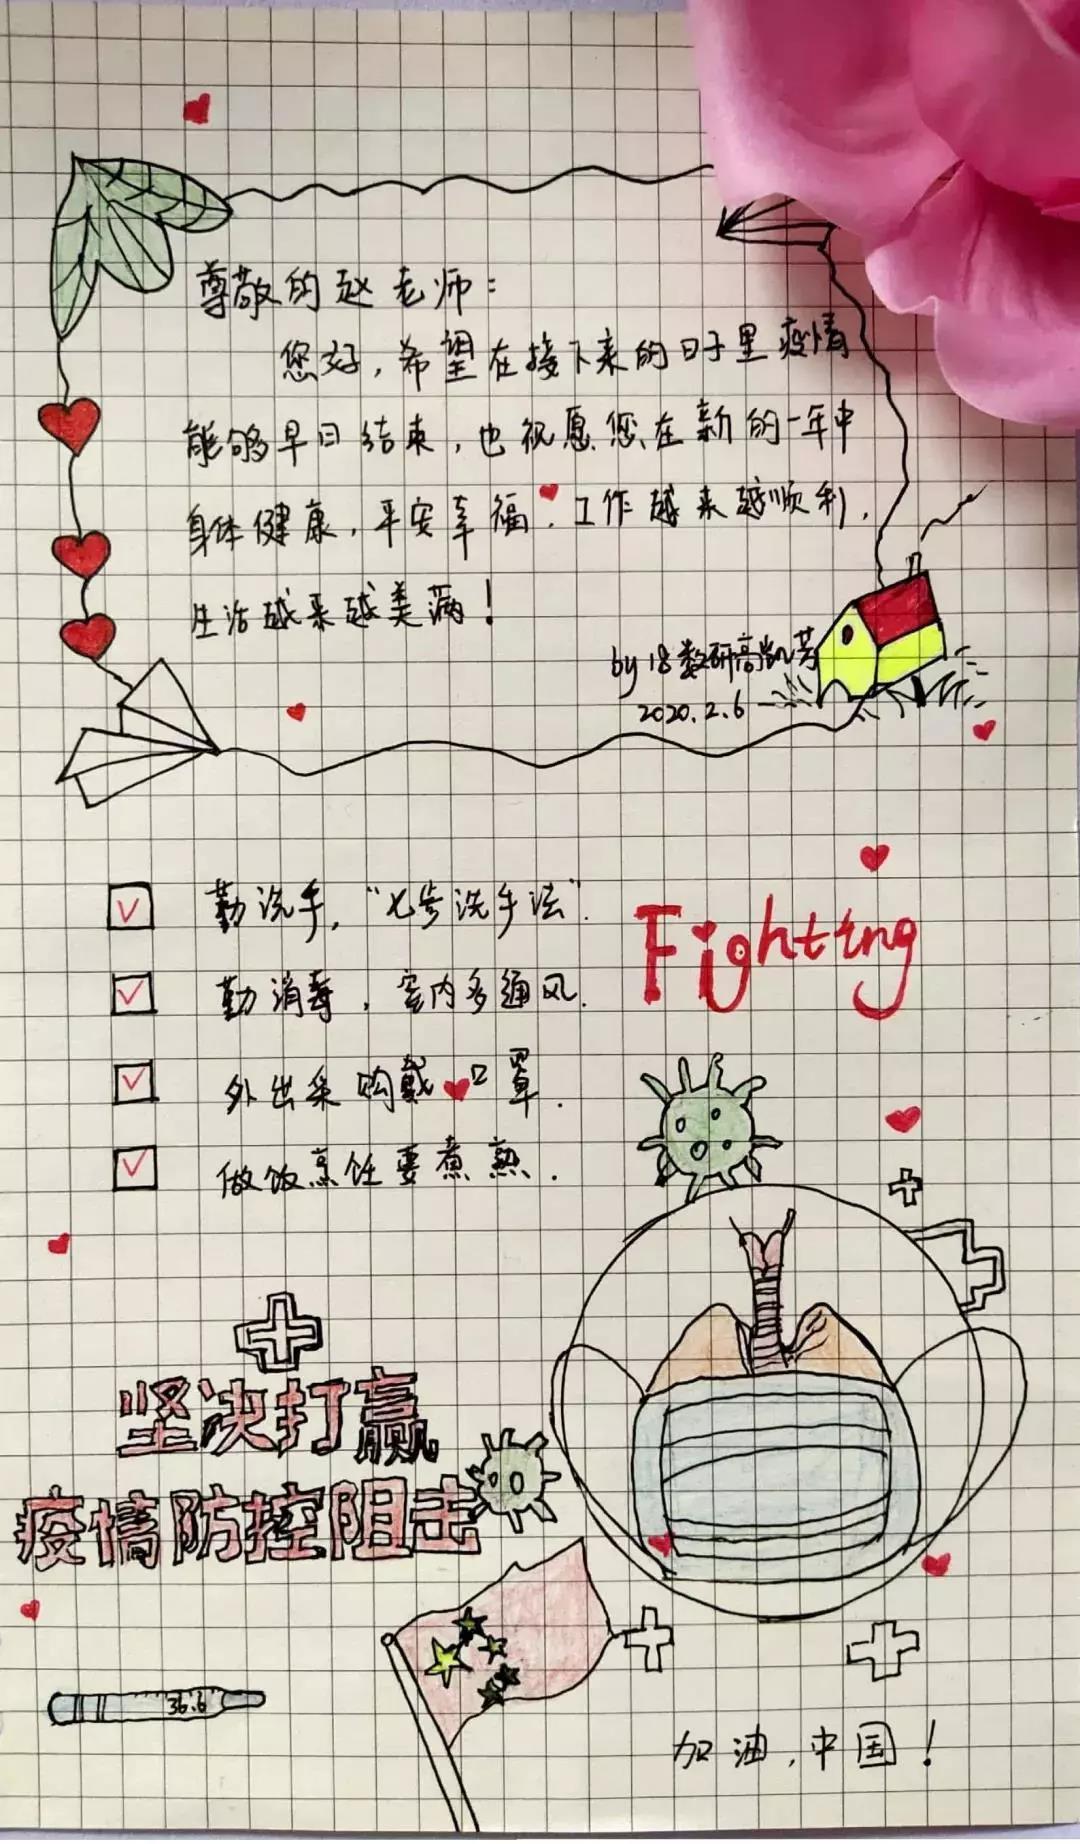 尊敬的赵老师：
您好，希望在接下来的日子里疫情
能够早日结束，也祝愿您在新的一年中
身体健康，平安幸福，工作越来越顺利，
生活越来越美满！
by 18数研高凯芳
2020.2.6
勤洗手，“七步洗手法”.
勤消毒，室内多通风.
外出采购戴口罩.
做饭烹饪要煮熟.
Fighting
坚决打赢
疫情防控阻击
36.6
加油，中国！